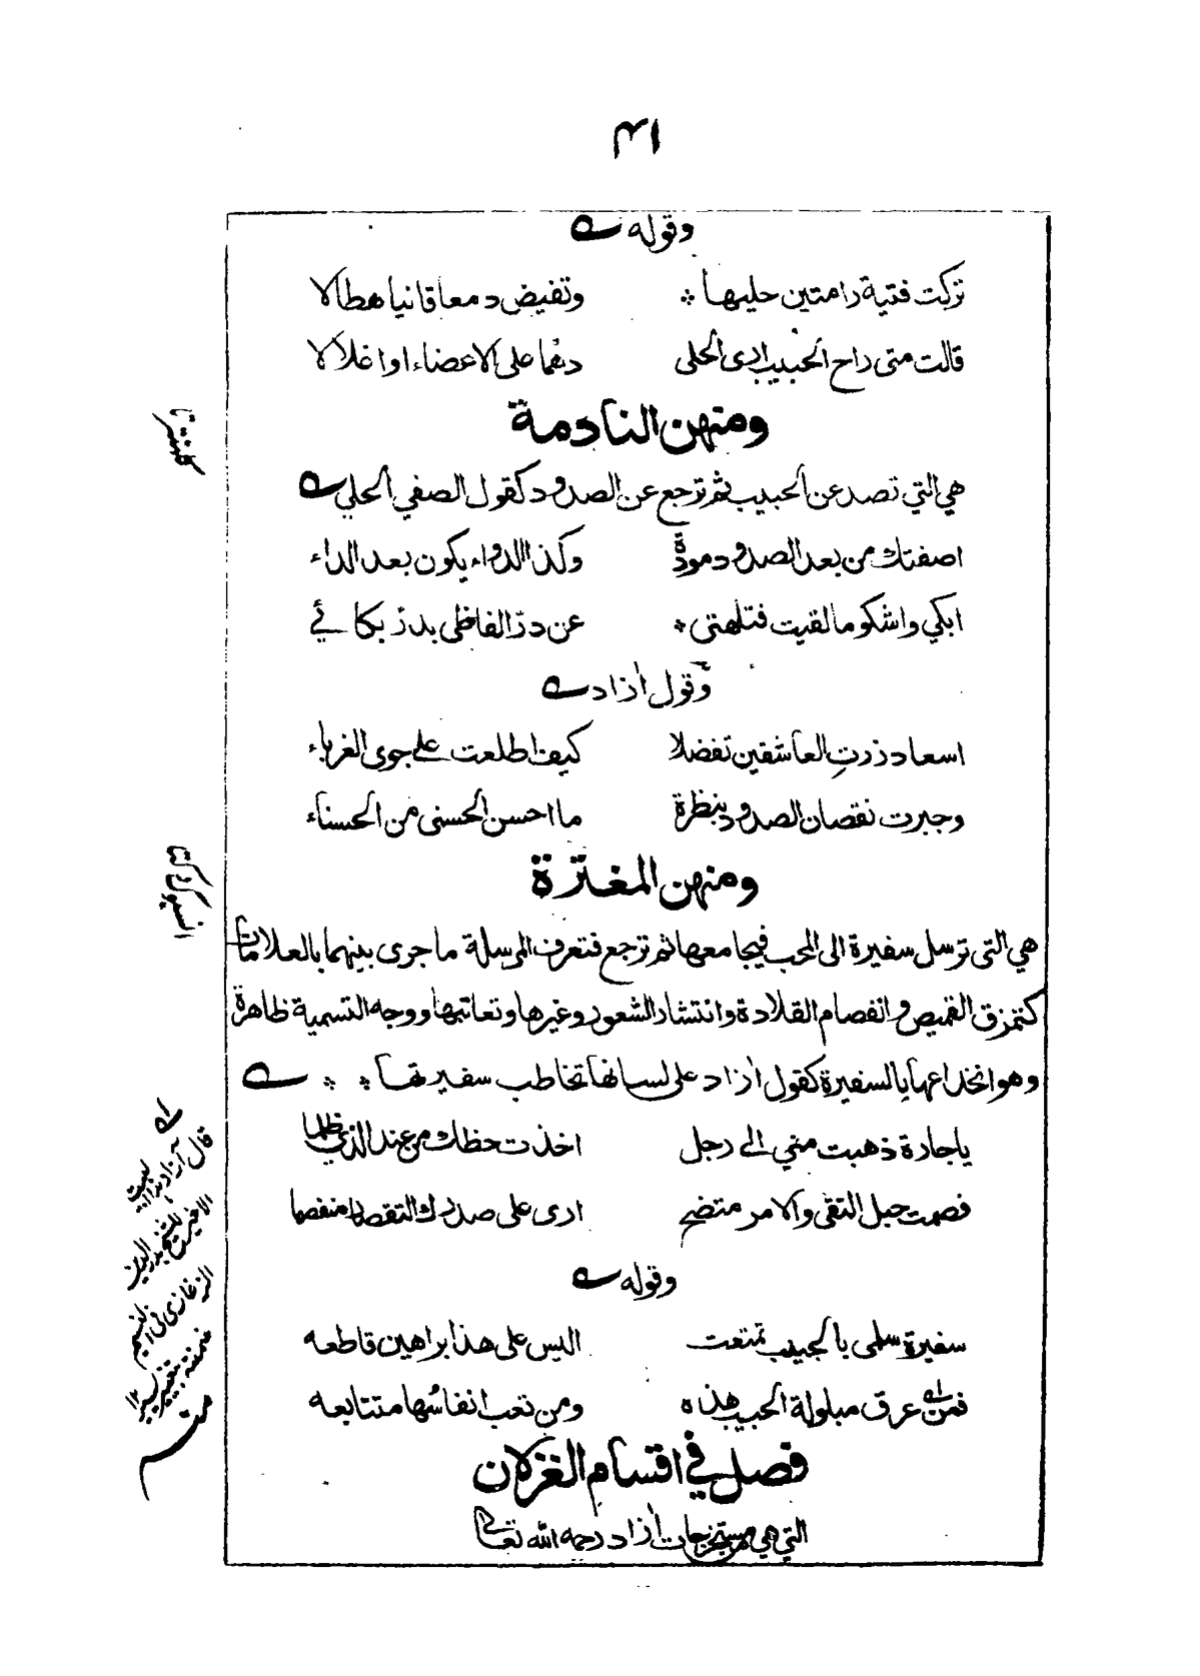 ٤١
وقوله
تركت فتية رامتين حليها وتفيض دمعا قانيا هطالا
قالت متى راح الحبيب ارى الحلى دهما على الاعضاء او اغلالا
ومنهن النادمة
هي التي تصد عن الحبيب ثم ترجع عن الصدود كقول الصفي الحلي
اصفتك من بعد الصدود مودة وكذا الدواء يكون بعد الداء
ابكي واشكو ما لقيت فتلهتى عن در الفاظي بدر بكائي
وقول آزاد
اسعاد زرت العاشقين تفضلا كيف اطلعت على جوى الغرباء
وجبرت نقصان الصدود بنظرة ما احسن الحسنى من الحسناء
ومنهن المغترة
هي التى ترسل سفيرة الى المحب فيجامعها ثم ترجع فتعرف المرسلة ما جرى بينهما بالعلامات
كتمزق القميص وانفصام القلادة وانتشار الشعور وغيرها وتعاتبها ووجه التسمية ظاهرة
وهو انخداعها بالسفيرة كقول آزاد على لسانها تخاطب سفيرتها
يا جارة ذهبت مني الى رجل اخذت حظك من عند الذي ظلما
فصمت حبل التقى والامر متضح ارى على صدرك التقصار منفصما
وقوله
سفيرة سلمى بالحبيب تمتعت اليس على هذا براهين قاطعه
فمن عرق مبلولة الحبيب هذه ومن تعب انفاسها متتابعه
فصل في اقسام الغزلان
التي هي مستخرجات آزاد رحمه الله تعالى